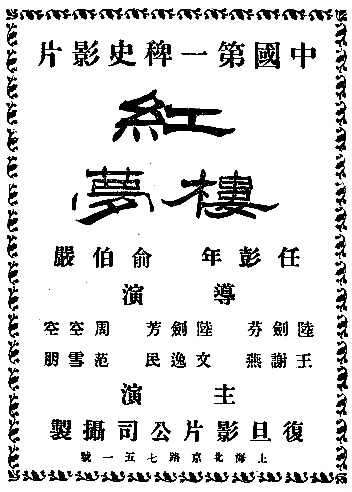 中國第一稗史影片
紅
樓夢
任彭年 俞伯嚴
導演
陸劍芬 陸劍芳 周空空
王謝燕 文逸民 范雪朋
主演
復旦影片公司攝製
上海北京路七五一號